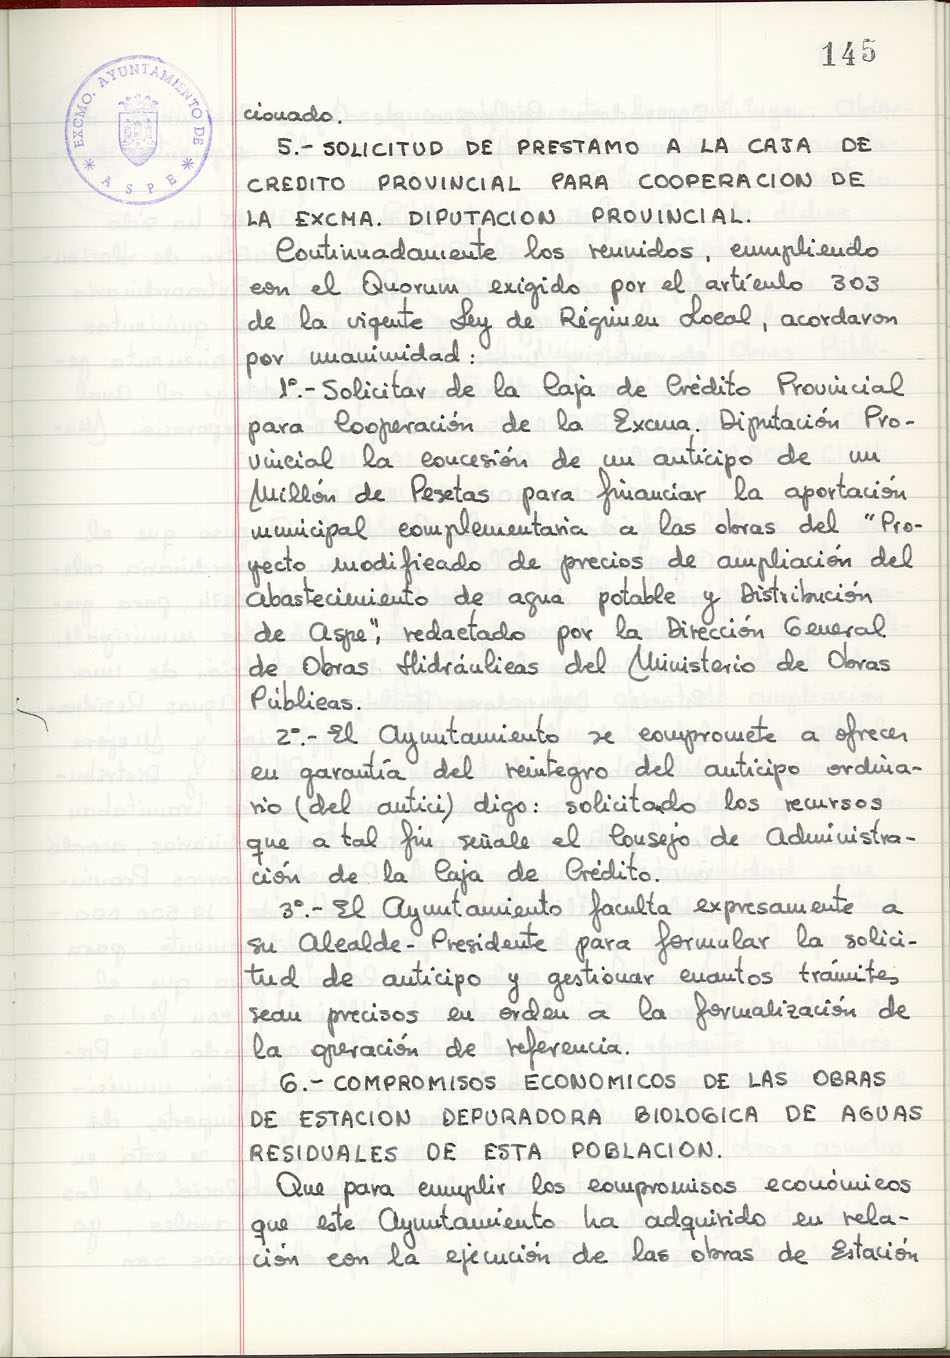 145
EXCMO. AYUNTAMIENTO DE
* ASPE *
cionado.
5.- SOLICITUD DE PRESTAMO A LA CAJA DE
CREDITO PROVINCIAL PARA COOPERACION DE
LA EXCMA. DIPUTACION PROVINCIAL.
Continuadamente los reunidos, cumpliendo
con el Quorum exigido por el artículo 303
de la vigente Ley de Régimen Local, acordaron
por unanimidad:
1º.- Solicitar de la Caja de Crédito Provincial
para Cooperación de la Excma. Diputación Pro-
vincial la concesión de un anticipo de un
Millón de Pesetas para financiar la aportación
municipal complementaria a las obras del "Pro-
yecto modificado de precios de ampliación del
abastecimiento de agua potable y Distribución
de Aspe", redactado por la Dirección General
de Obras Hidráulicas del Ministerio de Obras
Públicas.
2º.- El Ayuntamiento se compromete a ofrecer
en garantía del reintegro del anticipo ordina-
rio (del antici) digo: solicitado los recursos
que a tal fin señale el Consejo de Administra-
ción de la Caja de Crédito.
3º.- El Ayuntamiento faculta expresamente a
su Alcalde-Presidente para formular la solici-
tud de anticipo y gestionar cuantos trámites
sean precisos en orden a la formalización de
la operación de referencia.
6.- COMPROMISOS ECONOMICOS DE LAS OBRAS
DE ESTACION DEPURADORA BIOLOGICA DE AGUAS
RESIDUALES DE ESTA POBLACION.
Que para cumplir los compromisos económicos
que este Ayuntamiento ha adquirido en rela-
ción con la ejecución de las obras de Estación